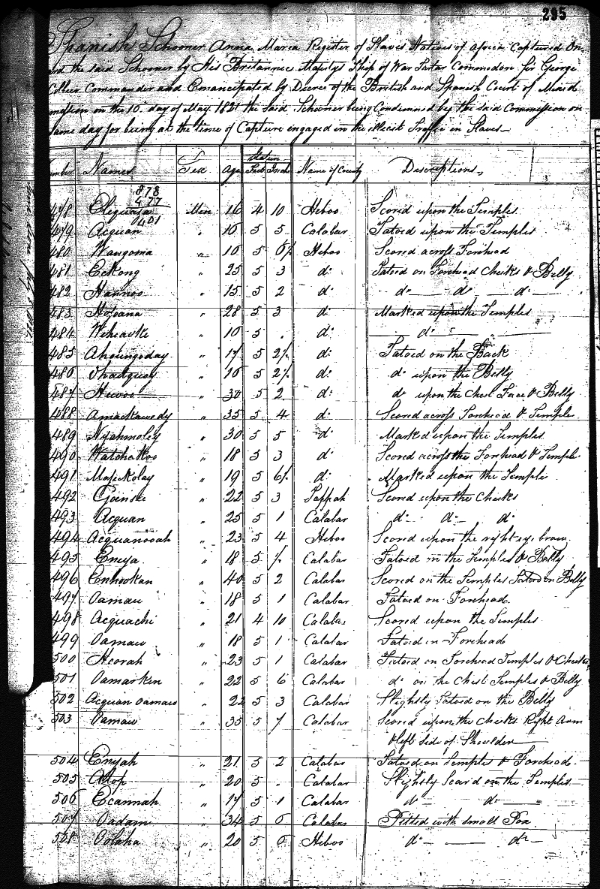 295
Spanish Schooner Anna Maria Register of Slaves Natives of Africa Captured On
the said Schooner by His Britannic Majestys Ship of War Tartar Commodore Sir George
Collier Commander and Emancipated by Decree of the British and Spanish Court of Mixed
mission on the 10. day of May 1821 the said Schooner being Condemned by the said Commission on
same day for being at the time of Capture engaged in the illicit Traffic in Slaves
Names Sex Age Stature Feet Inch Name of Country Descriptions
878
477
401
478 Men 16 4 10 Heboo Scored upon the Temples
479 Acquan " 5 5 Calabar Tatoed upon the Temples
480 Wangoma " 5 Heboo Scored across Forehead
481 Eckong " 25 5 3 do Tatoed on Forehead Cheeks & Belly
482 " 15 5 2 do do do do
483 " 28 5 3 do Marked upon the Temples
484 " 5 . do do
485 " 17 5 2½ do Tatoed on the Back
486 " 5 2½ do do upon the Belly
487 " 30 5 2 do do upon the Chest Face & Belly
488 " 35 5 4 do Scored across Forehead & Temple
489 " 30 5 5 do Marked upon the Temples
490 " 18 5 3 do Scored across the Forehead & Temple
491 " 19 5 6½ do Marked upon the Temple
492 " 22 5 3 Pappah Scored upon the Cheeks
493 Acquan " 25 5 1 Calabar do do do
494 Acquanooah " 23 5 4 Heboo Scored upon the right eye brow
495 Enya " 18 5 ½ Calabar Tatoed in the Temples & Belly
496 " 40 5 2 Calabar Scored on the Temples Tatoed on Belly
497 Oamau " 18 5 1 Calabar Tatoed on Forehead
498 Acquachi " 21 4 10 Calabar Scored upon the Temples
499 Oamau " 18 5 1 Calabar Tatoed in Forehead
500 Heorah " 23 5 1 Calabar Tatoed on Forehead Temples & Chest
501 Oamarken " 22 5 6 Calabar do on the Chest Temples & Belly
502 Acquan Oamau " 22 5 3 Calabar Slightly Tatoed on the Belly
503 Oamau " 35 5 7 Calabar Scored upon the Cheeks Right Arm
& left side of Shoulder
504 Enyah " 21 5 2 Calabar Tatoed on Temples & Forehead
505 " 20 5 . Calabar Slightly Scard on the Temples
506 Ecannah " 17 5 1 Calabar do do "
507 Oadam " 34 5 6 Calabar Pitted with small Pox
508 " 20 5 6 Heboo do do